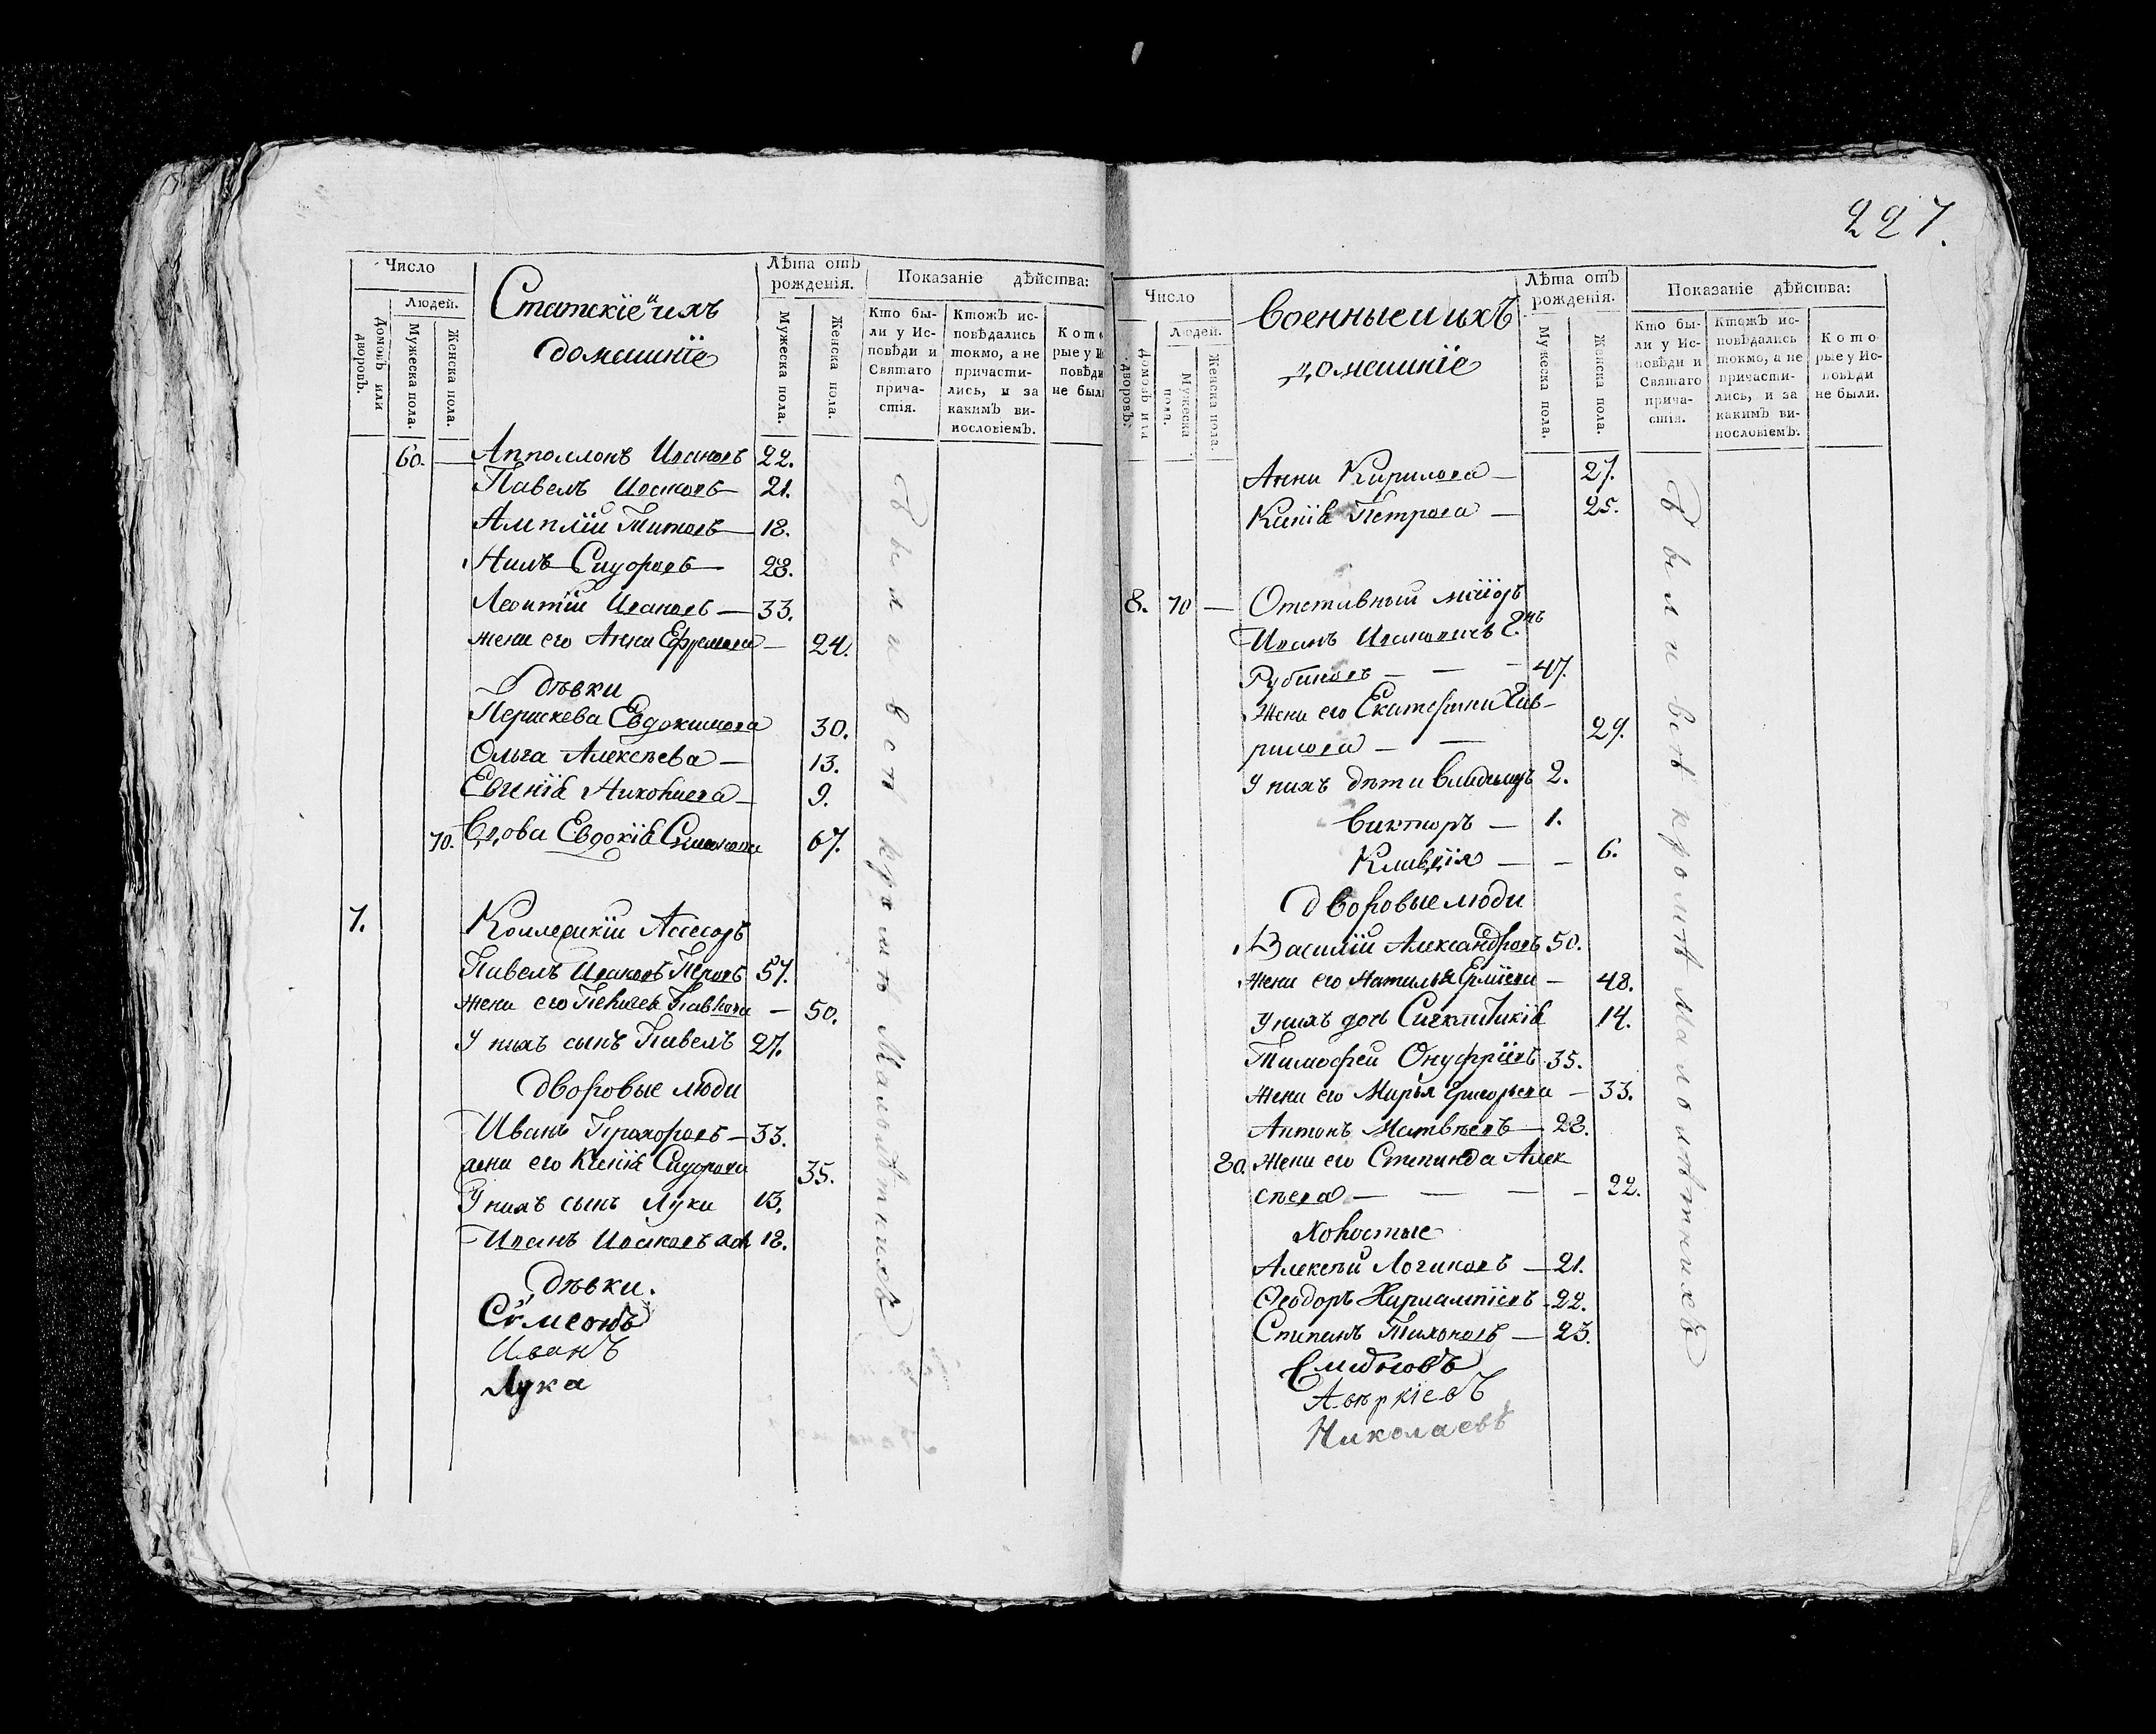 227.
Число
Людей.
Домовъ или дворовъ.
Мужеска пола.
Женска пола.
Статскіе и ихъ
домашніе
Лѣта отъ рожденія.
Мужеска пола.
Женска пола.
Показаніе дѣйства:
Кто бы-
ли у Ис-
повѣди и
Святаго
прича-
стія.
Ктожъ ис-
повѣдались
токмо, а не
причасти-
лись, и за
какимъ ви-
нословіемъ.
Кото
рые у И
повѣди
не был
60. — Апполлонъ Ивановъ 22.
Павелъ Ивановъ — 21.
Амплій Титовъ — 18.
Нилъ Сидоровъ — 28.
Леонтій Ивановъ — 33.
жена его Анна Ефремова — 24.
Дѣвки
Параскева Евдокимова 30.
Ольга Алексѣева — 13.
Евгенія 9.
70. Вдова Евдокія 67.
7. Коллежскій Асесоръ
Павелъ Ивановъ 57.
жена его 50.
У нихъ сынъ Павелъ 27.
Дворовые люди
Иванъ Прохоровъ — 33.
жена его Ксенія Сидорова 35.
У нихъ сынъ Лука 13.
Иванъ Ивановъ 18.
Дѣвки.
Сѵмеонъ
Иванъ
Лука
Были всѣ кромѣ Малолѣтнихъ
Число
Людей.
Домовъ или дворовъ.
Мужеска пола.
Женска пола.
Военные и ихъ
домашніе
Лѣта отъ рожденія.
Мужеска пола.
Женска пола.
Показаніе дѣйства:
Кто бы-
ли у Ис-
повѣди и
Святаго
прича-
стія.
Ктожъ ис-
повѣдались
токмо, а не
причасти-
лись, и за
какимъ ви-
нословіемъ.
Кото
рые у Ис-
повѣди
не были.
Анна Кирилова — 27.
Ксенія Петрова — 25.
8. 70 — Отставный маіоръ
Иванъ Ивановичъ
Рубановъ — — — 47.
Жена его Екатерина Гав-
рилова — — 29.
У нихъ дѣти Владимиръ 2.
Викторъ — 1.
Клавдія — — 6.
Дворовые люди
Василій Александровъ 50.
жена его Наталья — 48.
У нихъ дочь Сигклитикія 14.
Тимофей Онуфріевъ 35.
жена его Марья Григорьева — 33.
Антонъ Матвѣевъ — 28.
80. Жена его Степанида Алек
сѣева — — — — 22.
Холостые
Алексѣй Логиновъ — 21.
Ѳеодоръ Харлампіевъ — 22.
Степанъ Тихоновъ — 23.
Аверкіевъ
Николаевъ
Были всѣ кромѣ Малолѣтнихъ